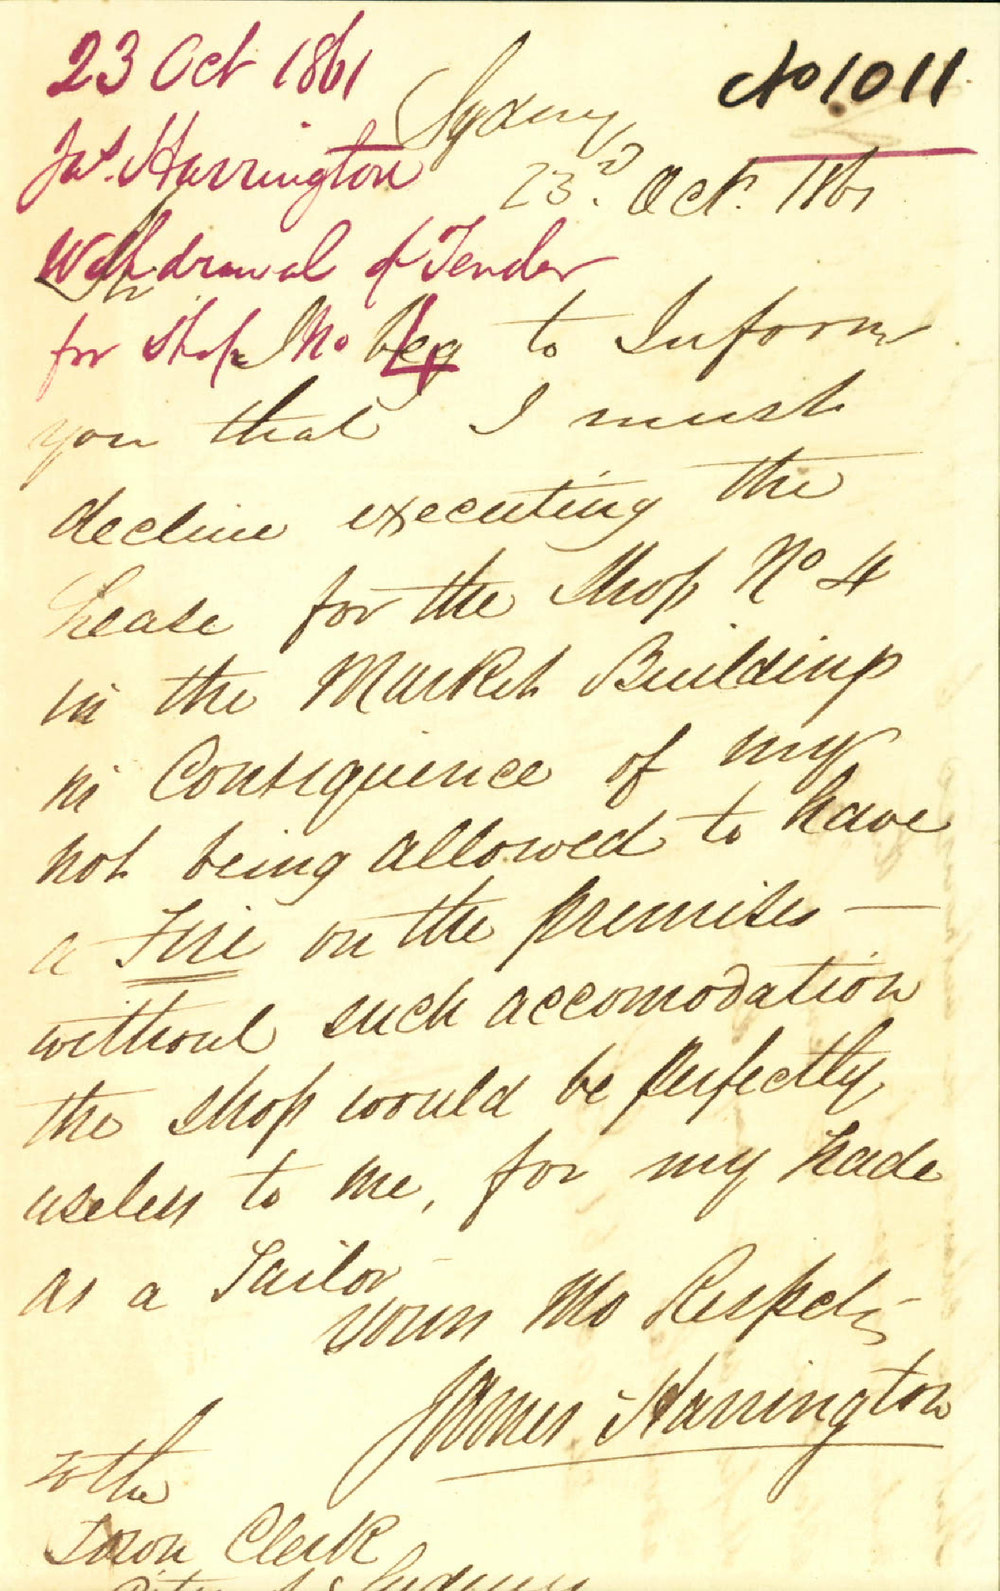 23 Oct 1861
Jas. Harrington
Withdrawal of Tender
for Shop No 4
No 1011
Sydney
23d. Oct. 1861
Sir
I beg to Inform
you that I must
decline executing the
Lease for the Shop No 4
in the Market Buildings
in Consequence of my
not being allowed to have
a Fire on the premises —
without such accomodation
the shop would be perfectly
useless to me, for my trade
as a Tailor
Yours Mo Respectfy
James Harrington
To the
Town Clerk
City of Sydney